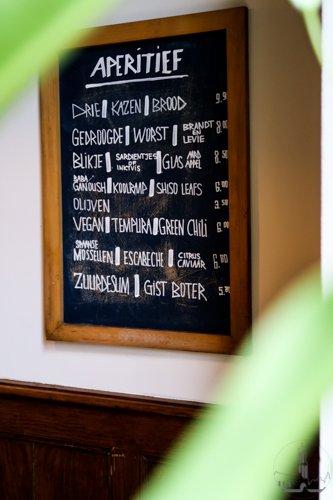 APERITIEF
DRIE | KAZEN | BROOD 9.9
GEDROOGDE | WORST | BRANDT EN LEVIE 8.
BLIKJE | SARDIENTJES OF INKTVIS | GLAS 8.50
BABA GANOUSH | KOOLRAAP | SHISO LEAFS 6.00
OLIJVEN 3.50
VEGAN | TEMPURA | GREEN CHILI 6.00
SPAANSE MOSSELEN | ESCABECHE | CITRUS CAVIAAR 6.00
ZUURDESUM | GIST BOTER 5.